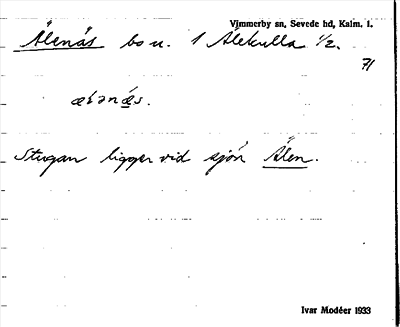 Vimmerby sn, Sevede hd, Kalm. l.
Älenäs bo u. 1 Alekulla 1/2.
71
ælənæs.
Stugan ligger vid sjön Älen.
Ivar Modéer 1933